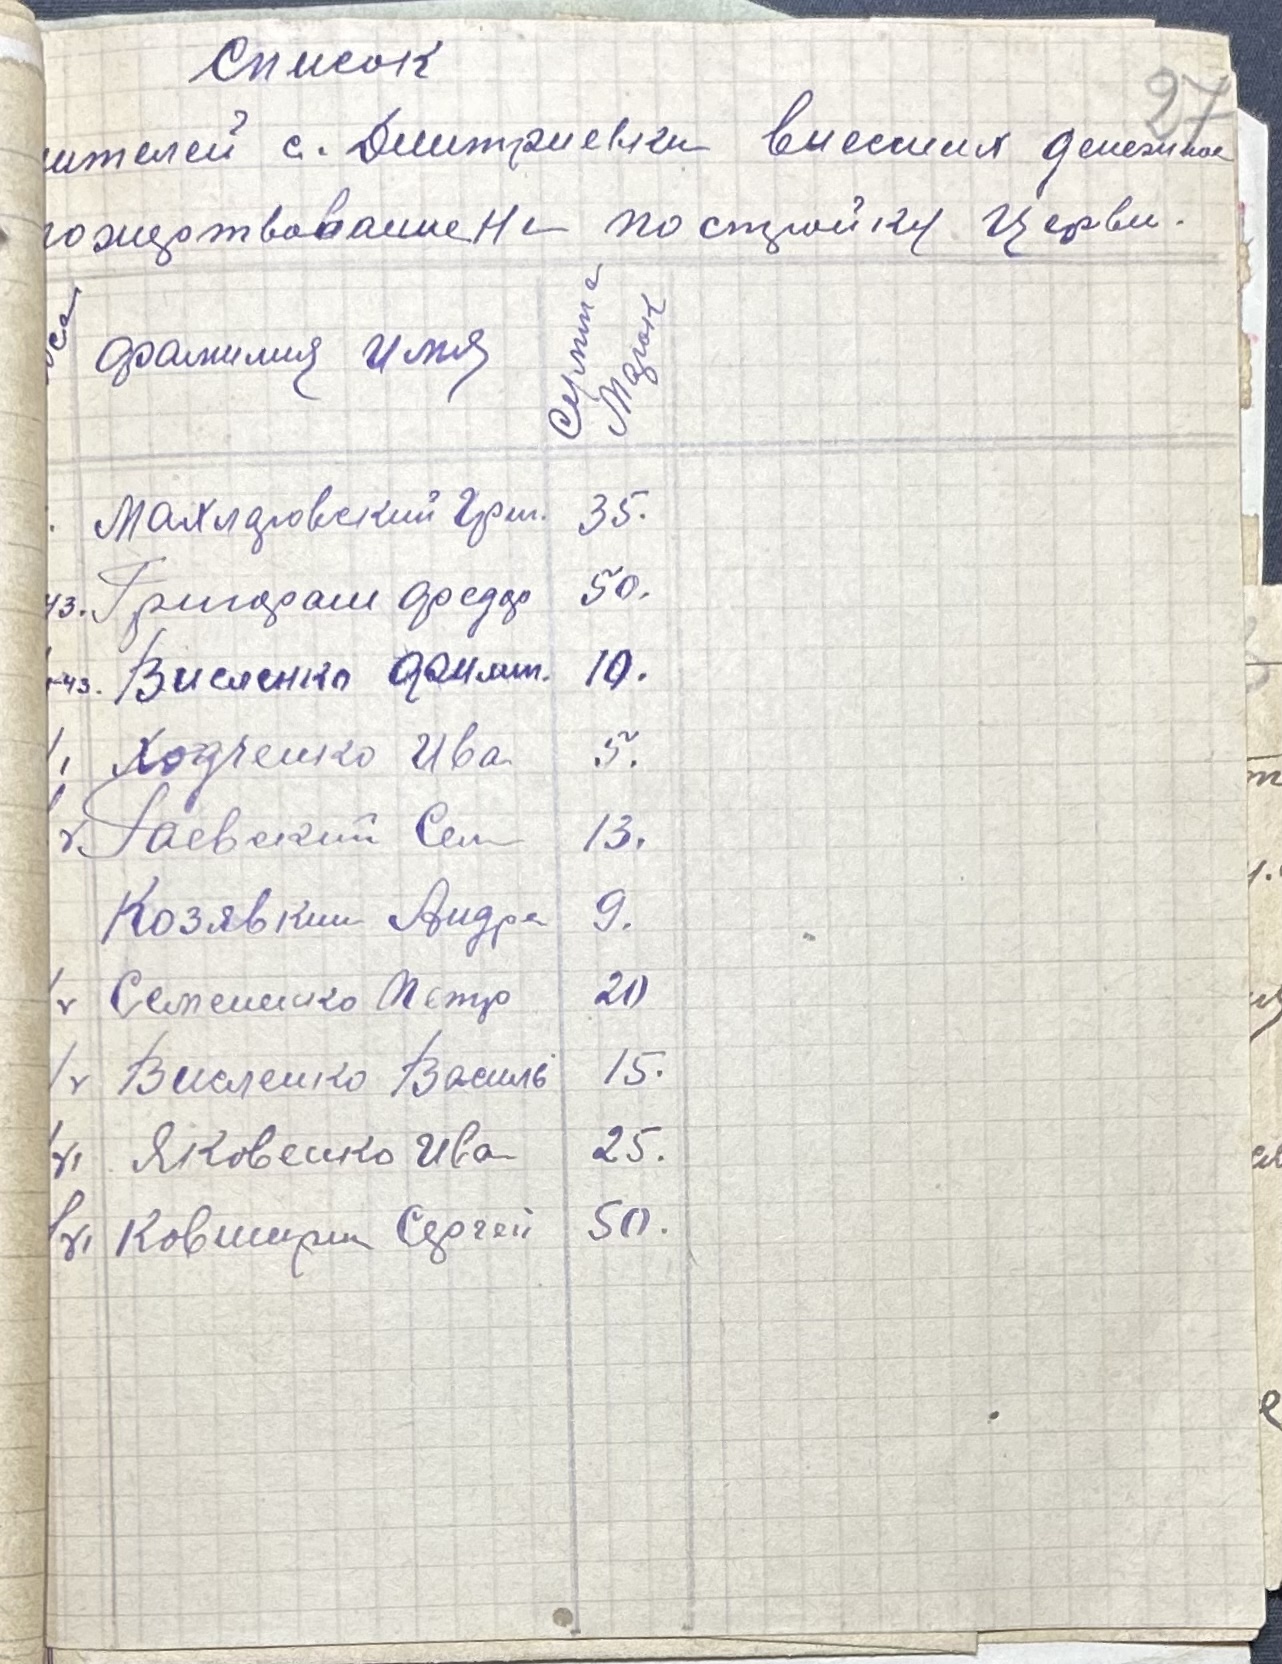 27
Список
ителей с. Дмитриевки внесших денежное
пожертвование На постройку Церкви.
фамилия имя Сумма Марок
Махляровский Григ. 35.
43. Григораш Федор 50.
43. Висленко Филип. 10.
Ходченко Ива 5.
Гаевский Сем 13.
Козявкин Андре 9.
Семененко Петр 20
Висленко Василь 15.
Яковенко Ива 25.
Ковширин Сергей 50.